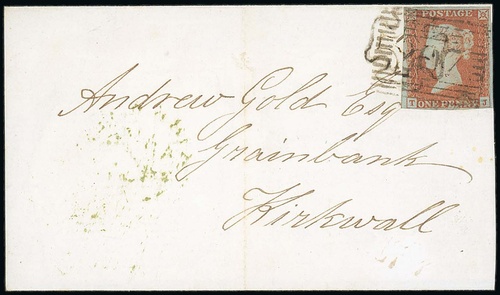 POSTAGE
T ONE PENNY J
Andrew Gold Esq
Grainbank
Kirkwall